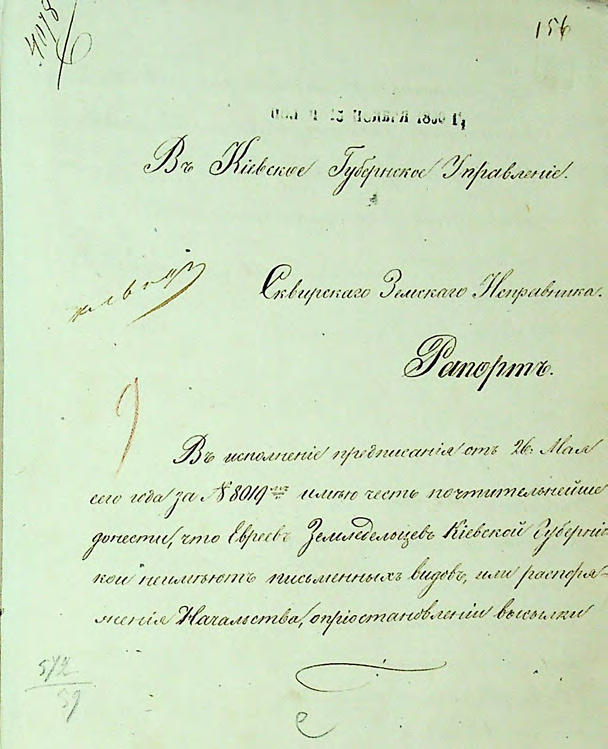 4078
156
15 НОЯБРЯ
Въ Кіевское Губернское Управленіе.
Сквирскаго Земскаго Исправника.
Рапортъ.
Въ исполненіе предписанія отъ 26. Мая
сего года за № 8019 имѣю честь почтительнейше
донести, что Евреевъ Земледельцевъ Кіевской Губернс
кой неимѣютъ письменныхъ видовъ, или распоря=
женія Начальства, опріостановленіи высылки
572
39